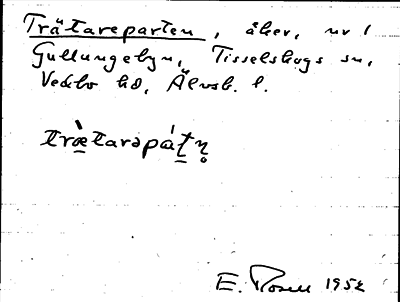 Trätareparten, åker, nr 1
Gullungebyn, Tisselskogs sn,
Vedbo hd, Älvsb. l.
træ̀tarəpát̯n̥
E. Rosell 1952